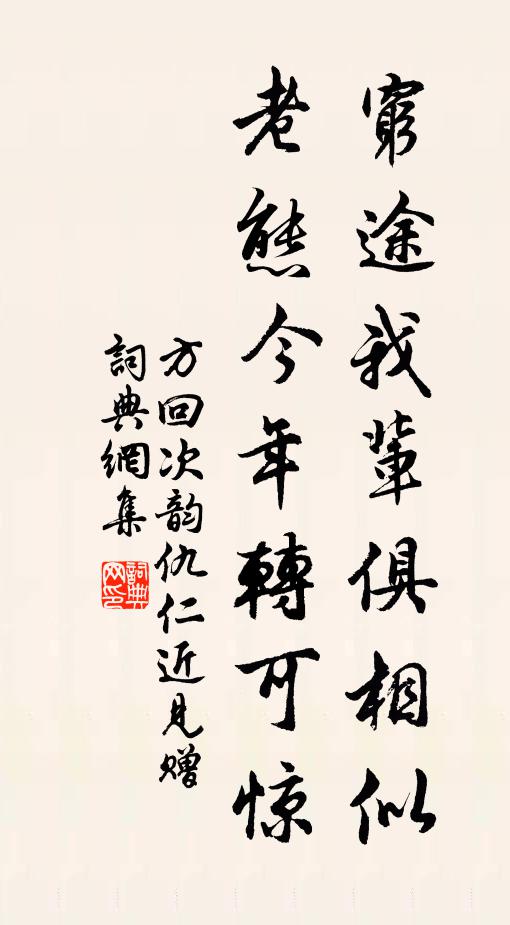 窮途我輩俱相似
老態今年轉可惊
方回次韵仇仁近見贈
詞典網集
詞典网印